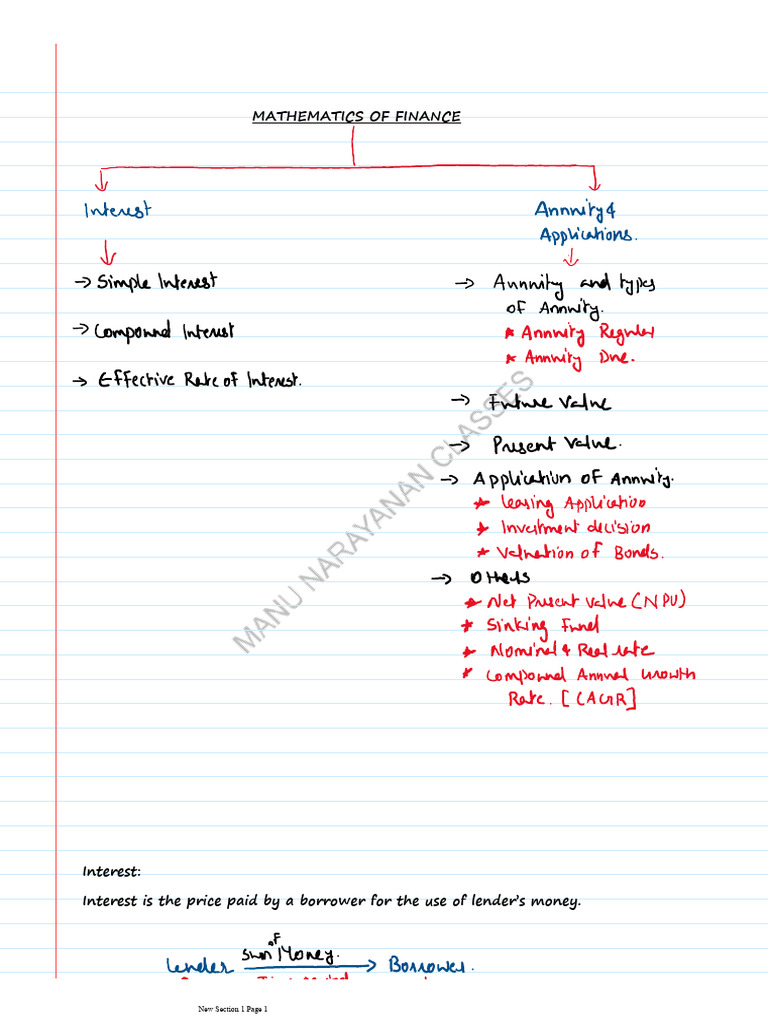 MATHEMATICS OF FINANCE
Interest
→ Simple Interest
→ Compound Interest
→ Effective Rate of Interest.
Annuity &
Applications.
→ Annuity and types
of Annuity.
* Annuity Regular
* Annuity Due.
→ Future Value
→ Present Value.
→ Application of Annuity.
* Leasing Application
* Investment decision
* Valuation of Bonds.
→ Others
* Net Present Value (NPV)
* Sinking Fund
* Nominal & Real rate
* Compound Annual Growth
Rate. [CAGR]
MANU NARAYANAN CLASSES
Interest:
Interest is the price paid by a borrower for the use of lender's money.
Sum of Money.
Lender → Borrower.
New Section 1 Page 1